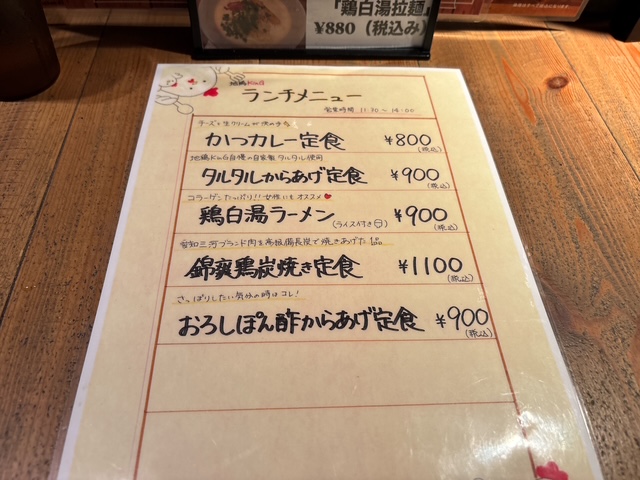 『鶏白湯拉麺』
¥880（税込み）
地鶏KinG
ランチメニュー
営業時間 11:30～14:00
チーズと生クリームが決め手
かつカレー定食 ¥800
(税込)
地鶏KinG自慢の自家製タルタル使用
タルタルからあげ定食 ¥900
(税込)
コラーゲンたっぷり!!女性にもオススメ
鶏白湯ラーメン (ライス付き) ¥900
(税込)
愛知三河ブランド肉を高級備長炭で焼きあげた
錦爽鶏炭焼き定食 ¥1100
(税込)
さっぱりしたい気分の時はコレ!
おろしぽん酢からあげ定食 ¥900
(税込)